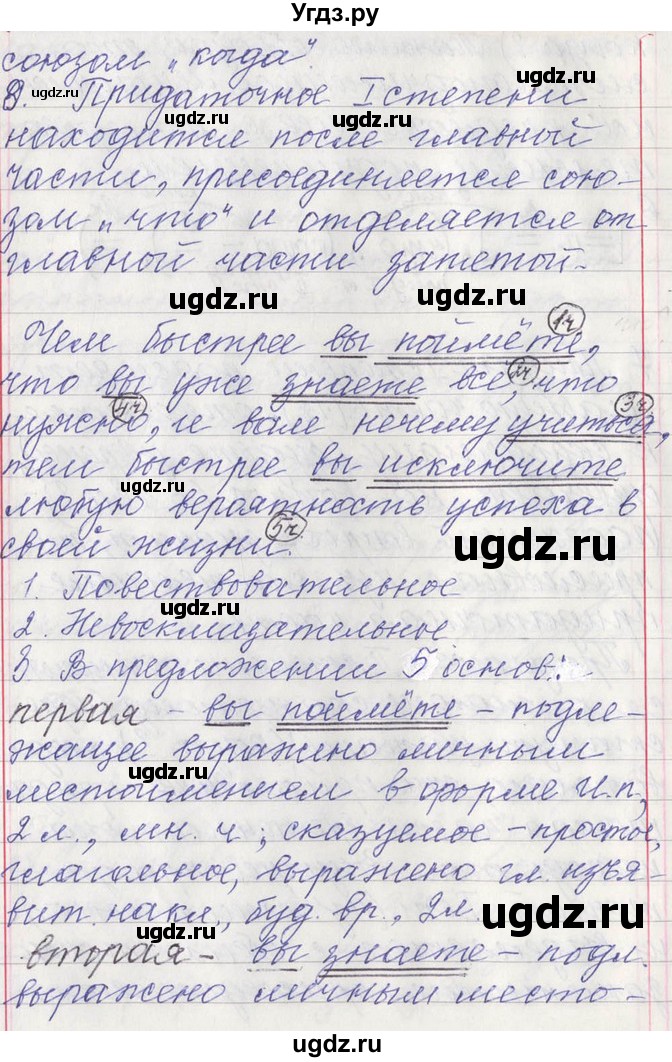 Угдз.ру
союзом „когда"
8. Придаточное I степени
находится после главной
части, присоединяется сою-
зом „что" и отделяется от
главной части запятой.
Чем быстрее вы поймёте, 1ч
что вы уже знаете все, 2ч что
нужно, 4ч и вам нечему учиться, 3ч
тем быстрее вы исключите
любую вероятность успеха в
своей жизни. 5ч
1. Повествовательное
2. Невосклицательное
3 В предложении 5 основ:
первая – вы поймёте – подле-
жащее выражено личным
местоимением в форме И.п.,
2 л., мн. ч.; сказуемое – простое,
глагольное, выражено гл. изъя-
вит. накл., буд. вр., 2л.
вторая – вы знаете – подл.
выражено личным место-